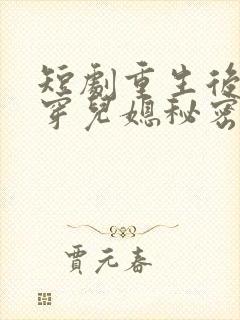 短劇重生後
穿兒媳秘密
賈元春